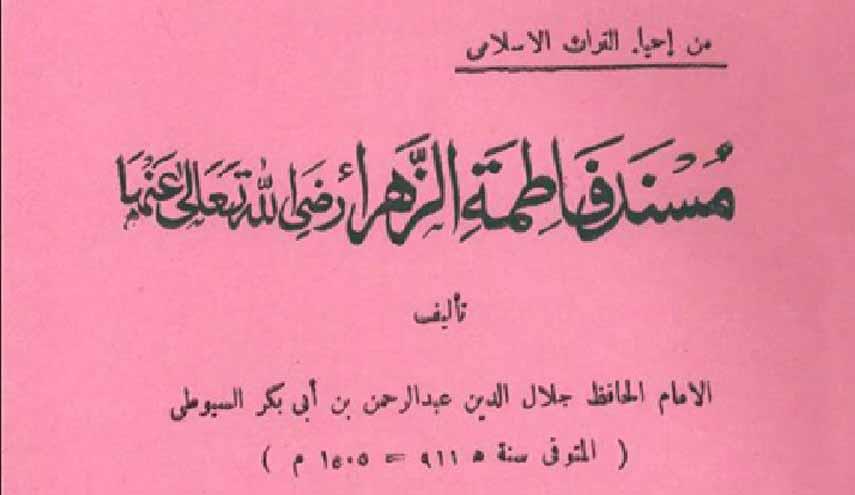 من إحياء التراث الاسلامى
مُسْنَد فَاطِمَة الزَّهراء رَضِيَ الله تَعَالى عَنْهَا
تأليف
الامام الحافظ جلال الدين عبدالرحمن بن أبى بكر السيوطى
( المتوفى سنة ه ٩١١ = ١٥٠٥ م )